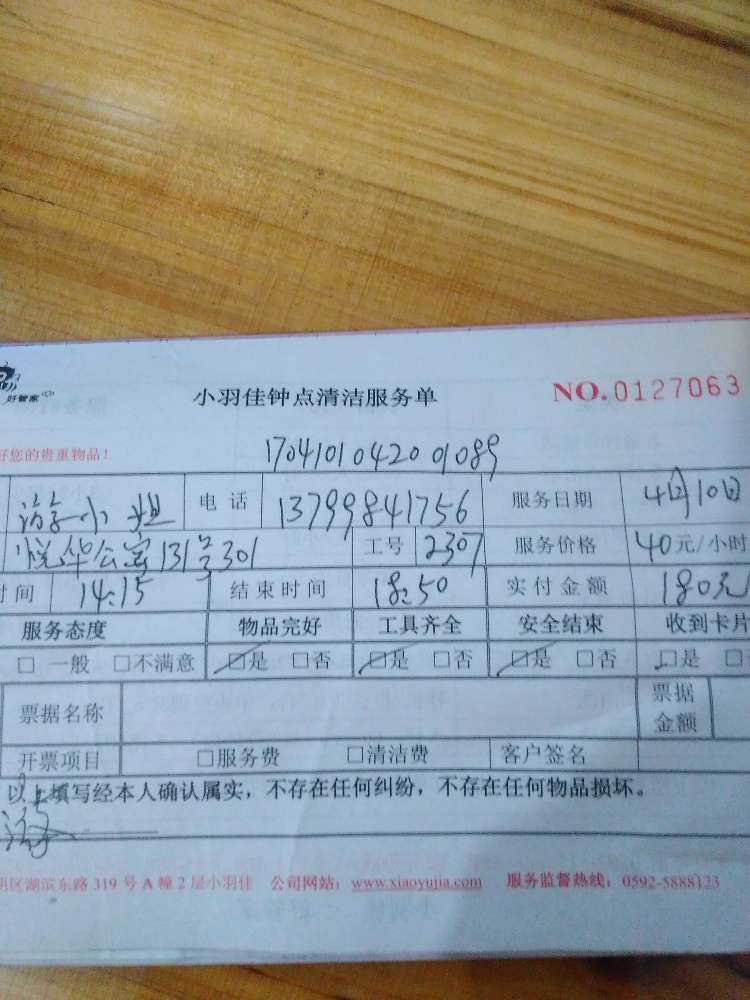 好管家
小羽佳钟点清洁服务单 NO.0127063
好您的贵重物品!
17041010420 01089
小姐 电话 13799841756 服务日期 4月10日
悦华公寓131号301 工号 2307 服务价格 40元/小时
时间 14:15 结束时间 18:50 实付金额 180元
服务态度 物品完好 工具齐全 安全结束 收到卡片
□一般 □不满意 □是 □否 □是 □否 □是 □否 □是
票据名称 票据金额
开票项目 □服务费 □清洁费 客户签名
以上填写经本人确认属实，不存在任何纠纷，不存在任何物品损坏。
明区湖滨东路 319 号 A 幢 2 层小羽佳 公司网站：www.xiaoyujia.com 服务监督热线：0592-5888123